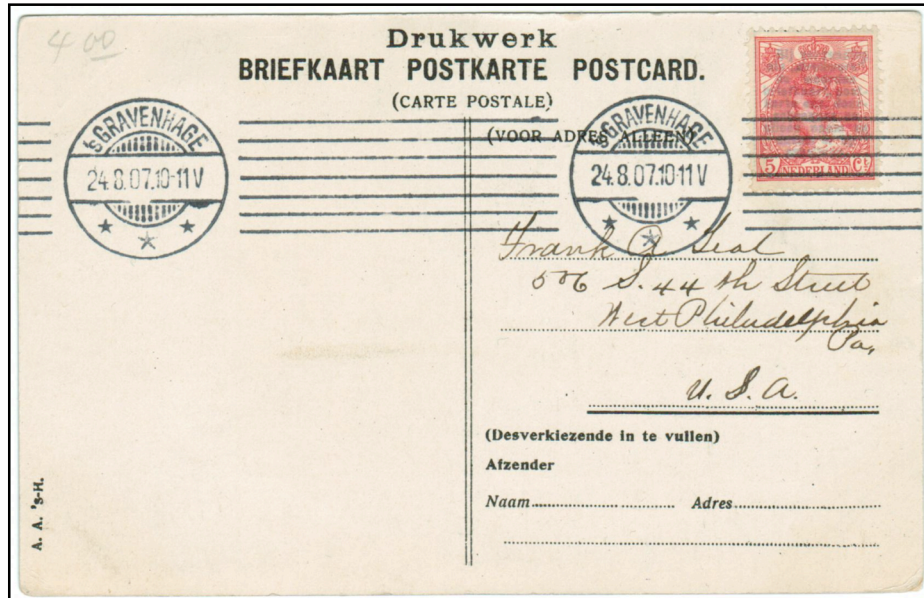 4 00
Drukwerk
BRIEFKAART POSTKARTE POSTCARD.
(CARTE POSTALE)
(VOOR ADRES ALLEEN)
'sGRAVENHAGE
24.8.07.10-11V
'sGRAVENHAGE
24.8.07.10-11V
5 NEDERLAND Ct
Frank A
S. 44 th Street
West Philadelphia
Pa,
U. S. A.
(Desverkiezende in te vullen)
Afzender
Naam Adres
A. A. 's-H.